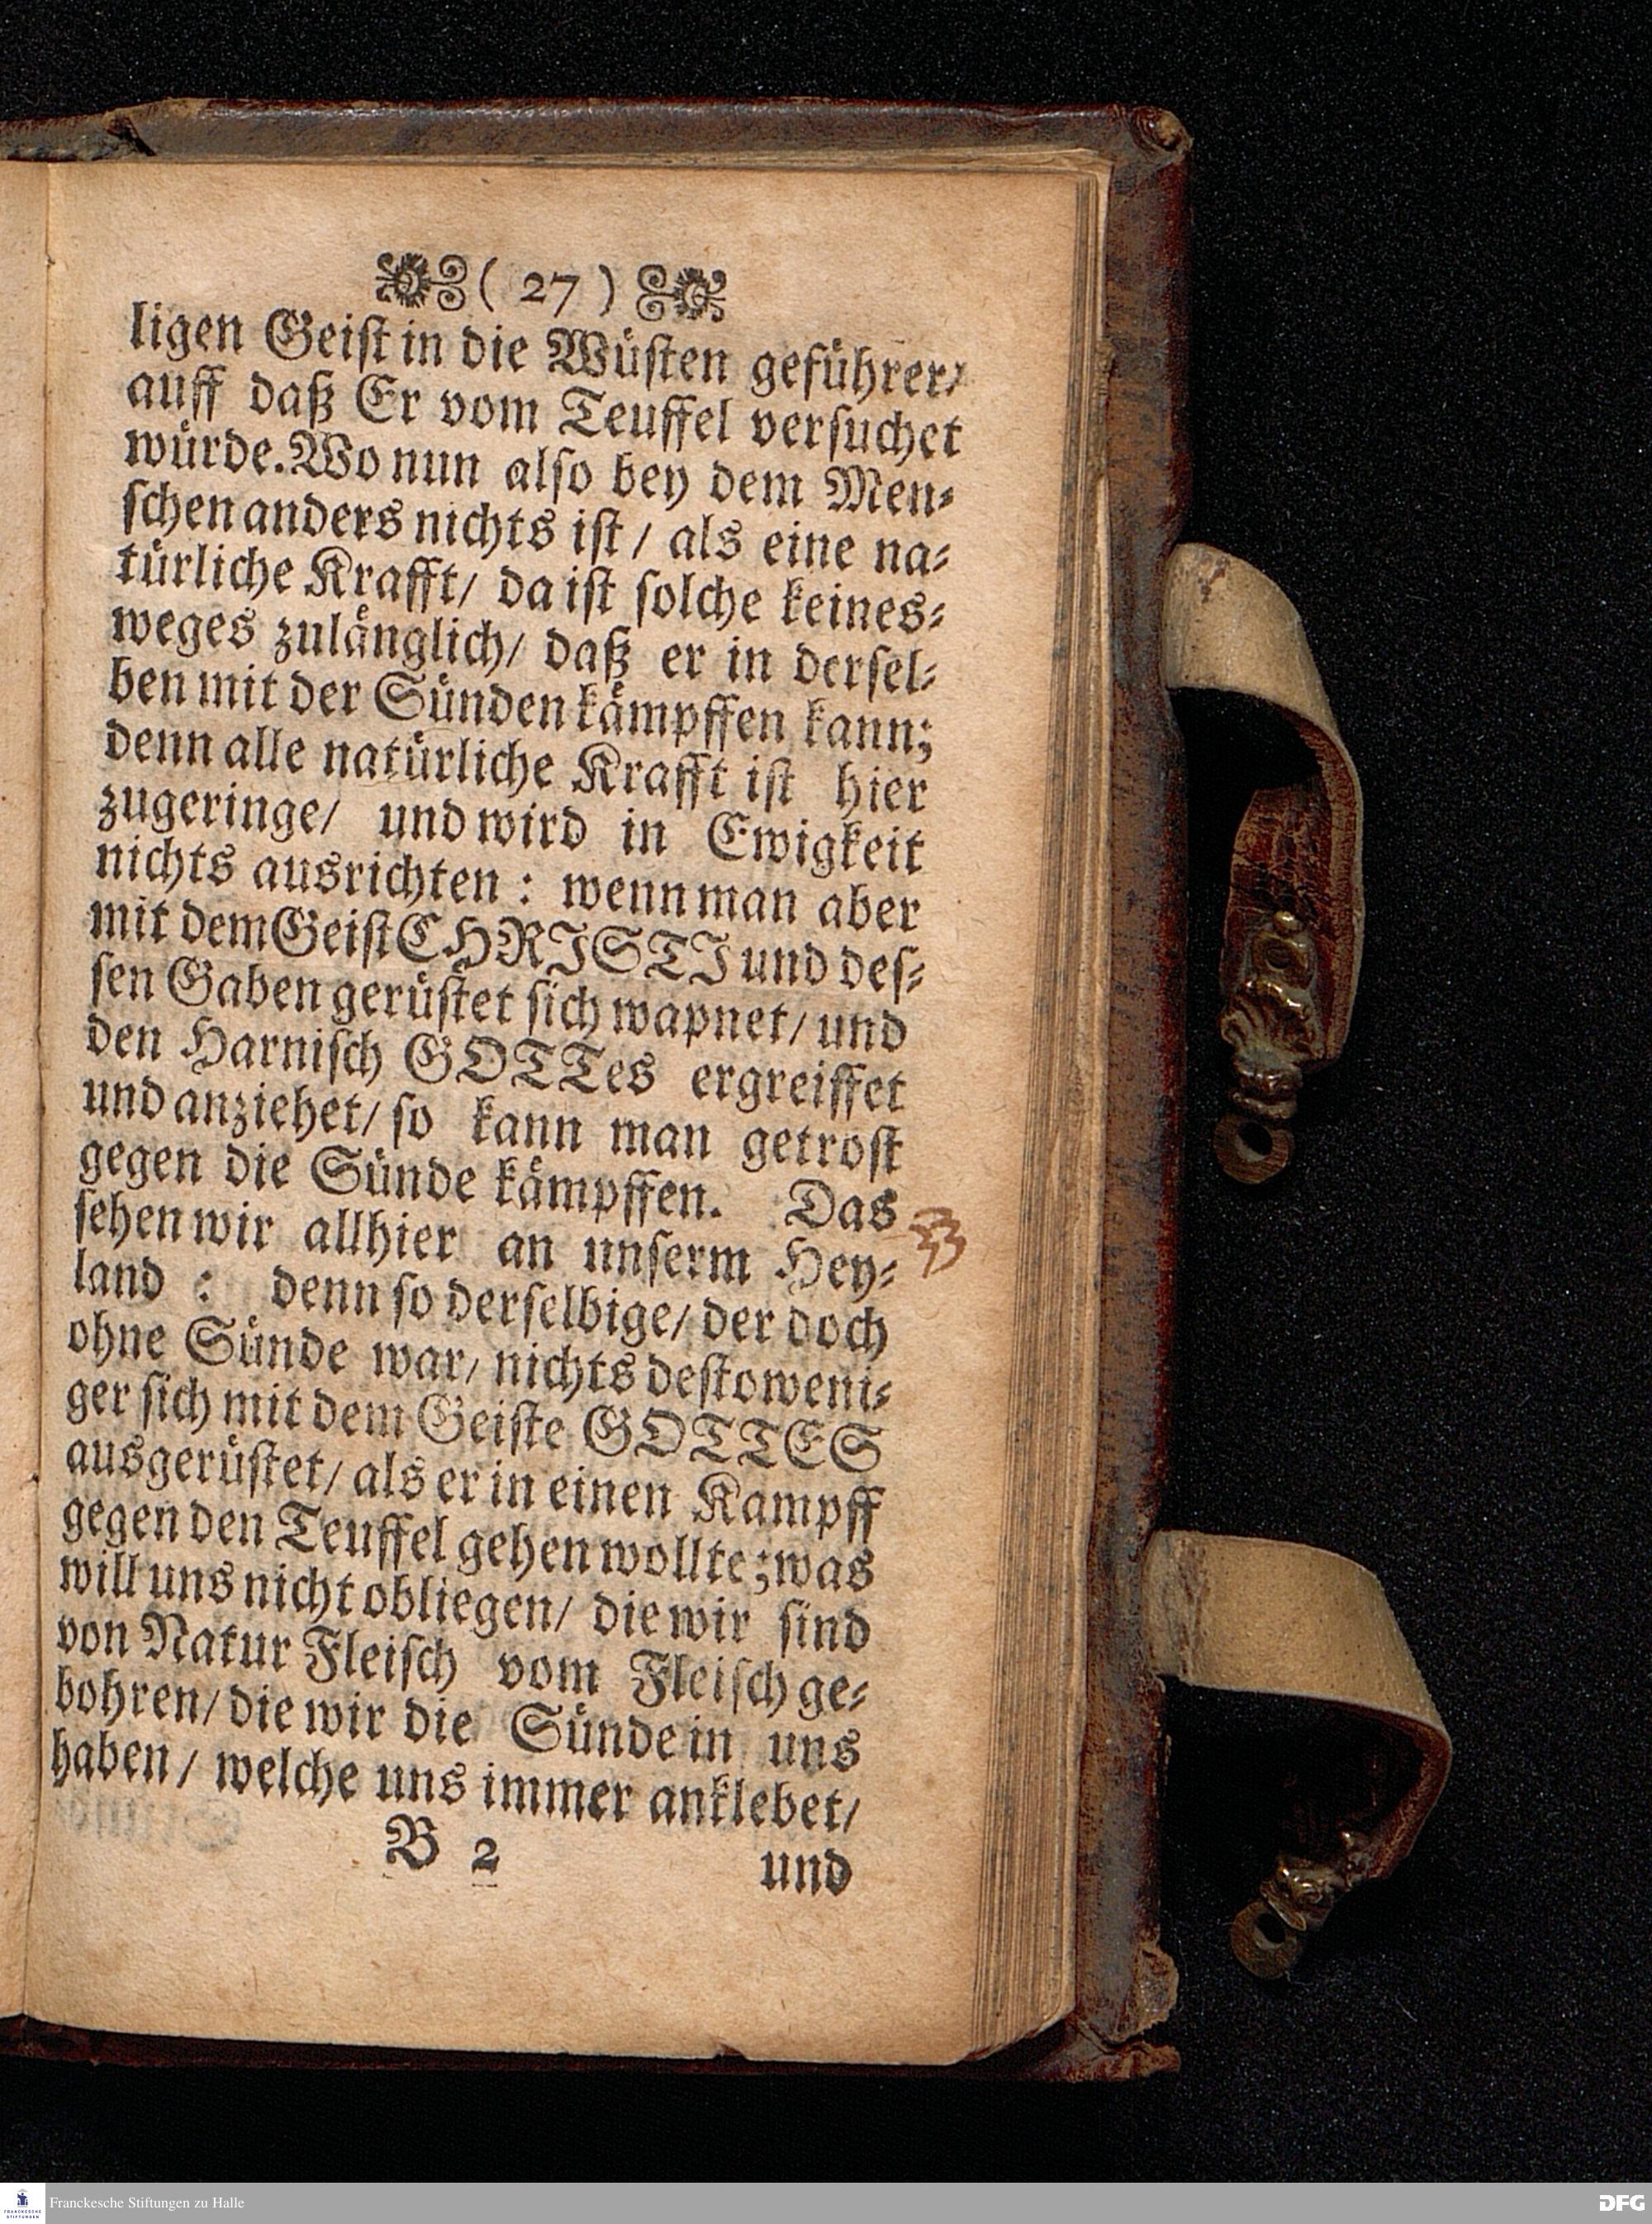 ( 27 )
ligen Geiſt in die Wüſten geführet/
auff daß Er vom Teuffel verſuchet
würde. Wo nun alſo bey dem Men⸗
ſchen anders nichts iſt / als eine na⸗
türliche Krafft/ da iſt ſolche keines⸗
weges zulänglich/ daß er in derſel⸗
ben mit der Sünden kämpffen kann;
denn alle natürliche Krafft iſt hier
zugeringe/ und wird in Ewigkeit
nichts ausrichten : wenn man aber
mit dem Geiſt CHRISTI und deſ⸗
ſen Gaben gerüſtet ſich wapnet/ und
den Harniſch GOTTes ergreiffet
und anziehet/ ſo kann man getroſt
gegen die Sünde kämpffen. Das
ſehen wir allhier an unſerm Hey⸗
land : denn ſo derſelbige/ der doch
ohne Sünde war/ nichts deſtoweni⸗
ger ſich mit dem Geiſte GOTTES
ausgerüſtet/ als er in einen Kampff
gegen den Teuffel gehen wollte; was
will uns nicht obliegen/ die wir ſind
von Natur Fleiſch vom Fleiſch ge⸗
bohren/ die wir die Sünde in uns
haben / welche uns immer anklebet/
B 2 und
Franckesche Stiftungen zu Halle
DFG